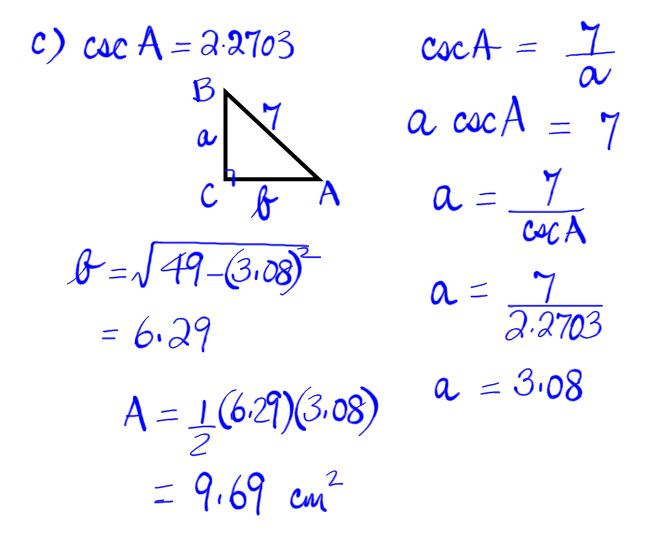 c) csc A = 2.2703
B
7
a
C
b
A
b = √49-(3.08)²
= 6.29
A = 1/2 (6.29)(3.08)
= 9.69 cm²
cscA = 7/a
a cscA = 7
a = 7/cscA
a = 7/2.2703
a = 3.08